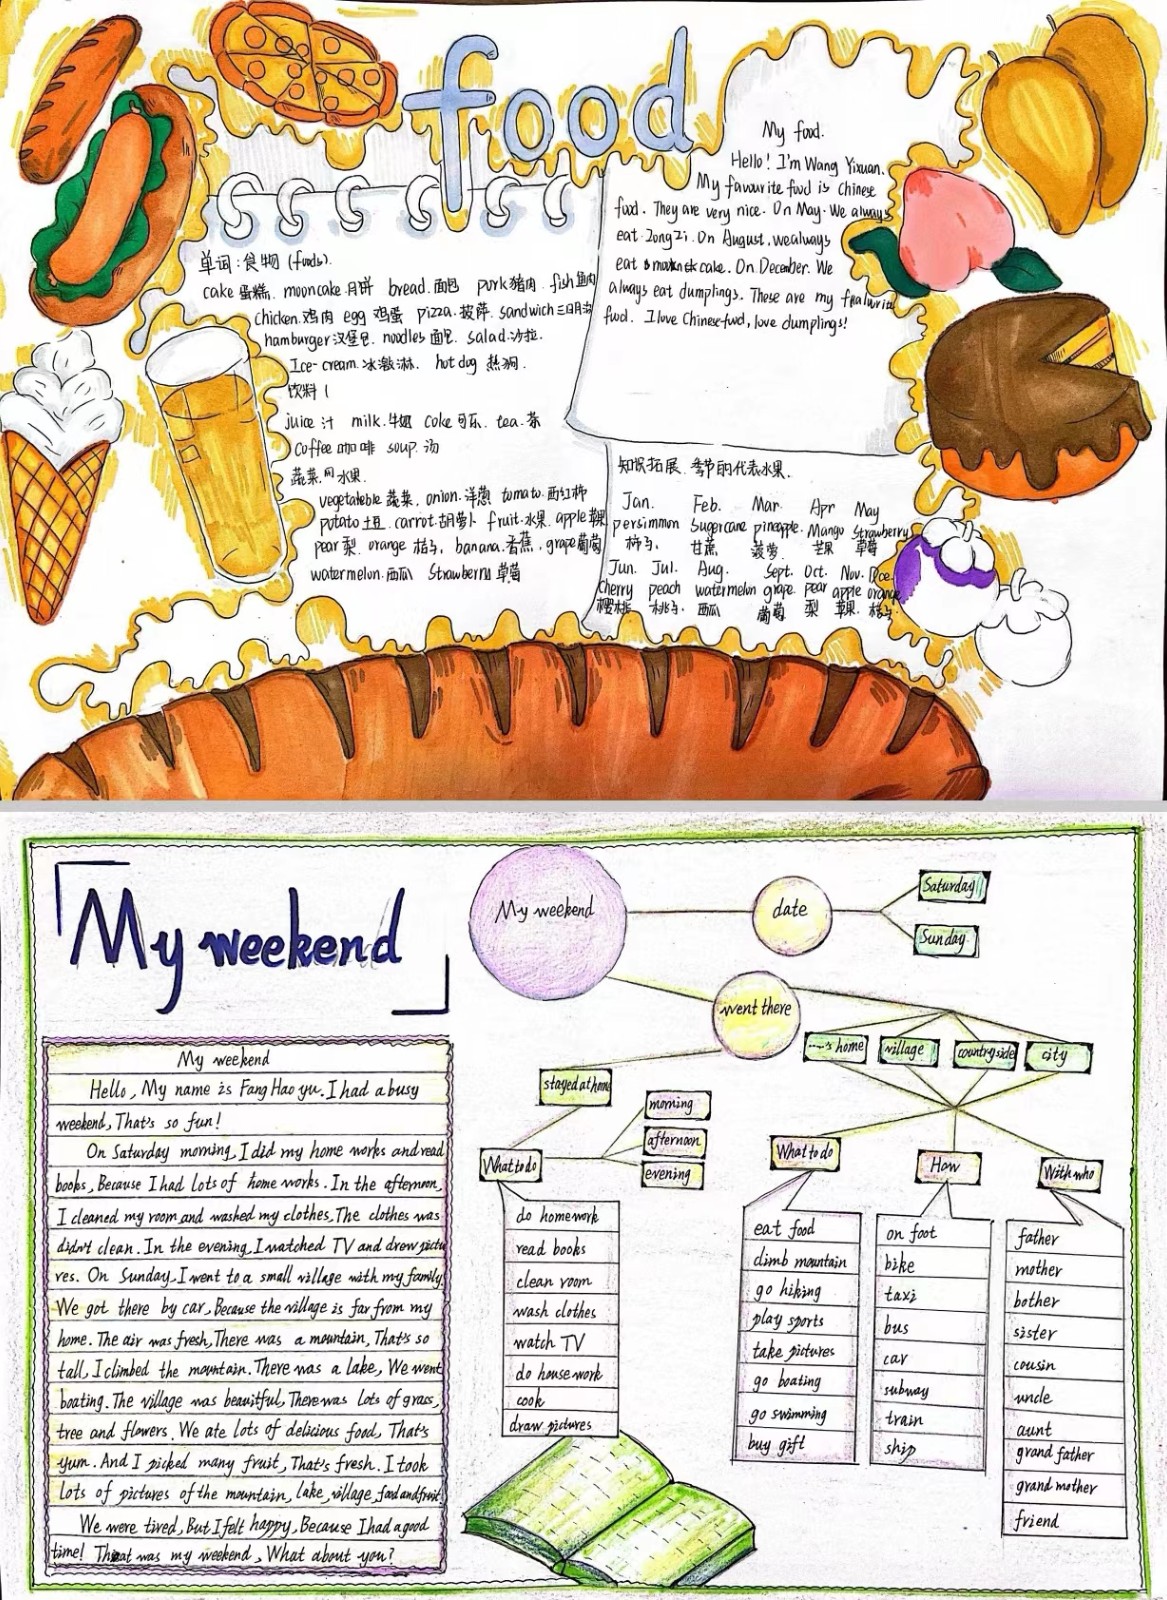 food
My food.
Hello! I'm Wang Yixuan.
My favourite food is Chinese
food. They are very nice. On May. We always
eat Zongzi. On August. we always
eat cake. On December. We
always eat dumplings. These are my
food. I love Chinese food, love dumplings!
单词:食物 (foods).
cake 蛋糕. mooncake 月饼 bread. 面包 pork 猪肉. fish 鱼肉
chicken. 鸡肉 egg 鸡蛋 pizza. 披萨. sandwich 三明治
hamburger 汉堡包. noodles 面包. salad. 沙拉.
Ice-cream. 冰激淋. hot dog 热狗.
饮料
juice 汁 milk. 牛奶 coke 可乐. tea. 茶
Coffee 咖啡 soup. 汤
蔬菜. 水果.
vegetateble 蔬菜. onion. 洋葱 tomato. 西红柿
potato 土豆. carrot. 胡萝卜 fruit. 水果. apple 苹果
pear 梨. orange 桔子. banana. 香蕉. grape 葡萄
watermelon. 西瓜 Strawberry 草莓
知识拓展. 季节的代表水果.
Jan. Feb. Mar. Apr May
persimmon Sugercane pineapple. Mango Strawberry
柿子. 甘蔗 菠萝. 芒果 草莓
Jun. Jul. Aug. Sept. Oct. Nov. Dce.
Cherry peach watermelon grape. pear apple orange
樱桃 桃子. 西瓜 葡萄 梨 苹果. 桔子.
My weekend
My weekend
Hello, My name is Fang Hao yu. I had a busy
weekend, That's so fun!
On Saturday morning, I did my home works and read
books, Because I had lots of home works. In the afternoon,
I cleaned my room and washed my clothes, The clothes was
didn't clean. In the evening, I watched TV and drew pictu
res. On Sunday. I went to a small village with my family.
We got there by car, Because the village is far from my
home. The air was fresh, There was a mountain, That's so
tall, I climbed the mountain. There was a lake, We went
boating. The village was beauitful, There was Lots of grass,
tree and flowers. We ate lots of delicious food, That's
yum. And I picked many fruit, That's fresh. I took
Lots of pictures of the mountain, lake, village, food and fruit.
We were tired, But I felt happy, Because I had a good
time! That was my weekend, What about you?
My weekend
date
Saturday
Sunday
went there
...'s home
village
countryside
city
stayed at home
What to do
morning
afternoon
evening
do homework
read books
clean room
wash clothes
watch TV
do house work
cook
draw pictures
What to do
eat food
climb mountain
go hiking
play sports
take pictures
go boating
go swimming
buy gift
How
on foot
bike
taxi
bus
car
subway
train
ship
With who
father
mother
bother
sister
cousin
uncle
aunt
grand father
grand mother
friend